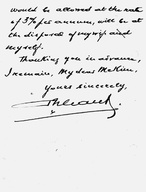 would be allowed at the rate
of 3% per annum, will be at
the disposal of my wife and
myself.
Thanking you in advance,
I remain, My dear McKim,
Yours sincerely,